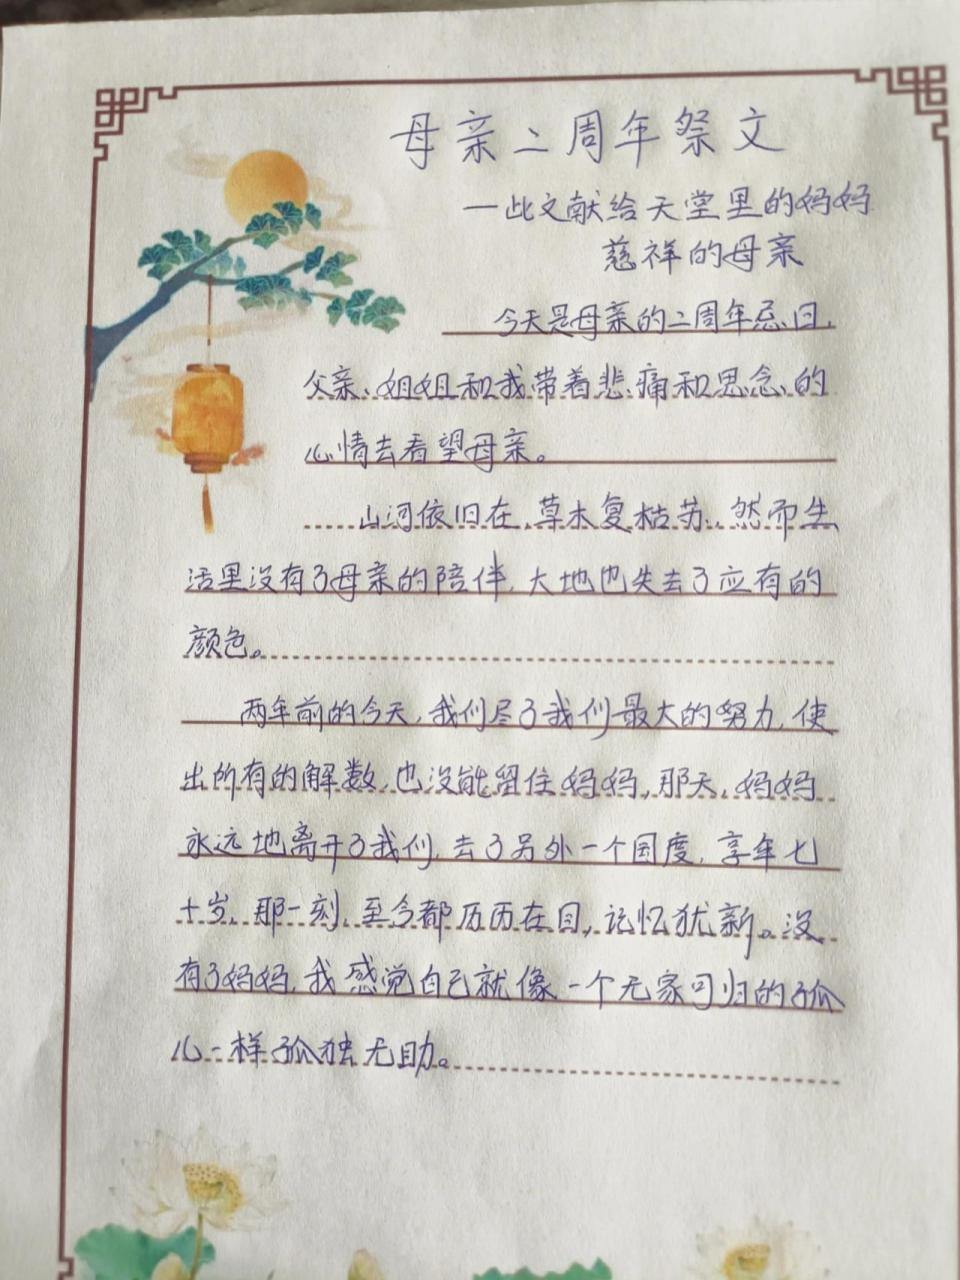 母亲二周年祭文
—此文献给天堂里的妈妈
慈祥的母亲
今天是母亲的二周年忌日,
父亲、姐姐和我带着悲痛和思念的
心情去看望母亲。
山河依旧在,草木复枯苏,然而生
活里没有了母亲的陪伴,大地也失去了应有的
颜色。
两年前的今天,我们尽了我们最大的努力,使
出所有的解数,也没能留住妈妈,那天,妈妈
永远地离开了我们,去了另外一个国度,享年七
十岁,那一刻,至今都历历在目,记忆犹新。没
有了妈妈,我感觉自己就像一个无家可归的孤
儿一样孤独无助。